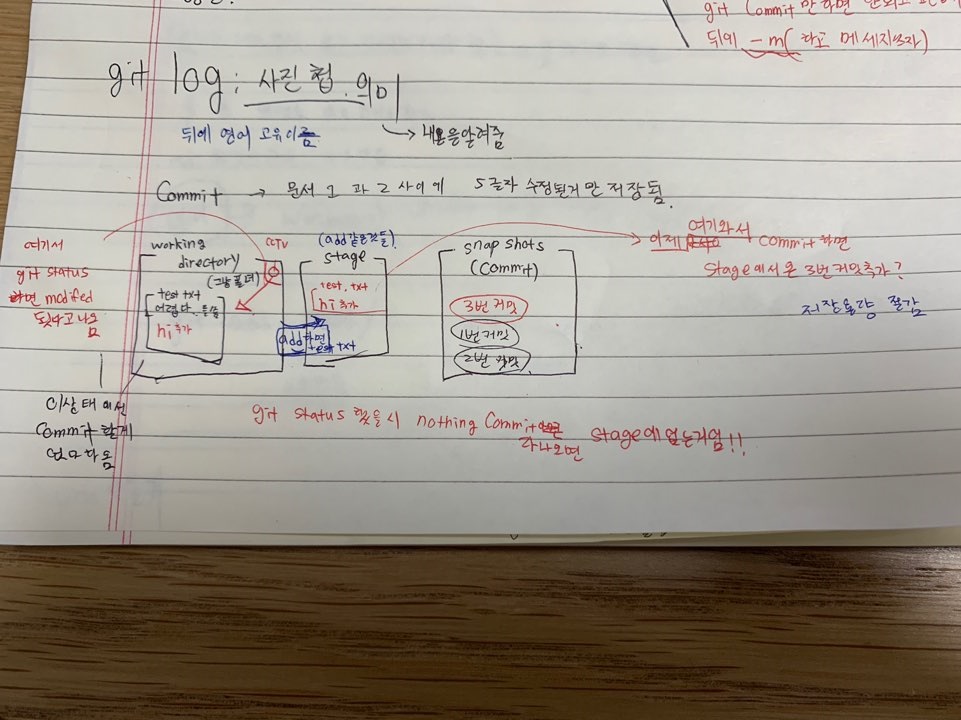 git commit 만 하면
뒤에 -m( 라고 메세지쓰자)
git log : 사진첩. 의미
뒤에 영어 고유이름
→ 내용을알려줌
Commit → 문서 1 과 2 사이에 5글자 수정된거만 저장됨.
여기서
git status
하면 modifed
됫다고나옴
이상태에선
Commit 할게
없다나옴
working
directory
(그냥 폴더)
CCTV
test txt
어렵다.
hi 추가
add하면
(add같은것들)
stage
test. txt
hi 추가
test txt
snap shots
(Commit)
3번 커밋
1번커밋
2번 커밋
이제 여기와서 Commit 하면
Stage에서온 3번커밋추가?
저장용량 절감
git status 했을시 nothing Commit 라나오면 Stage에 없는거임!!